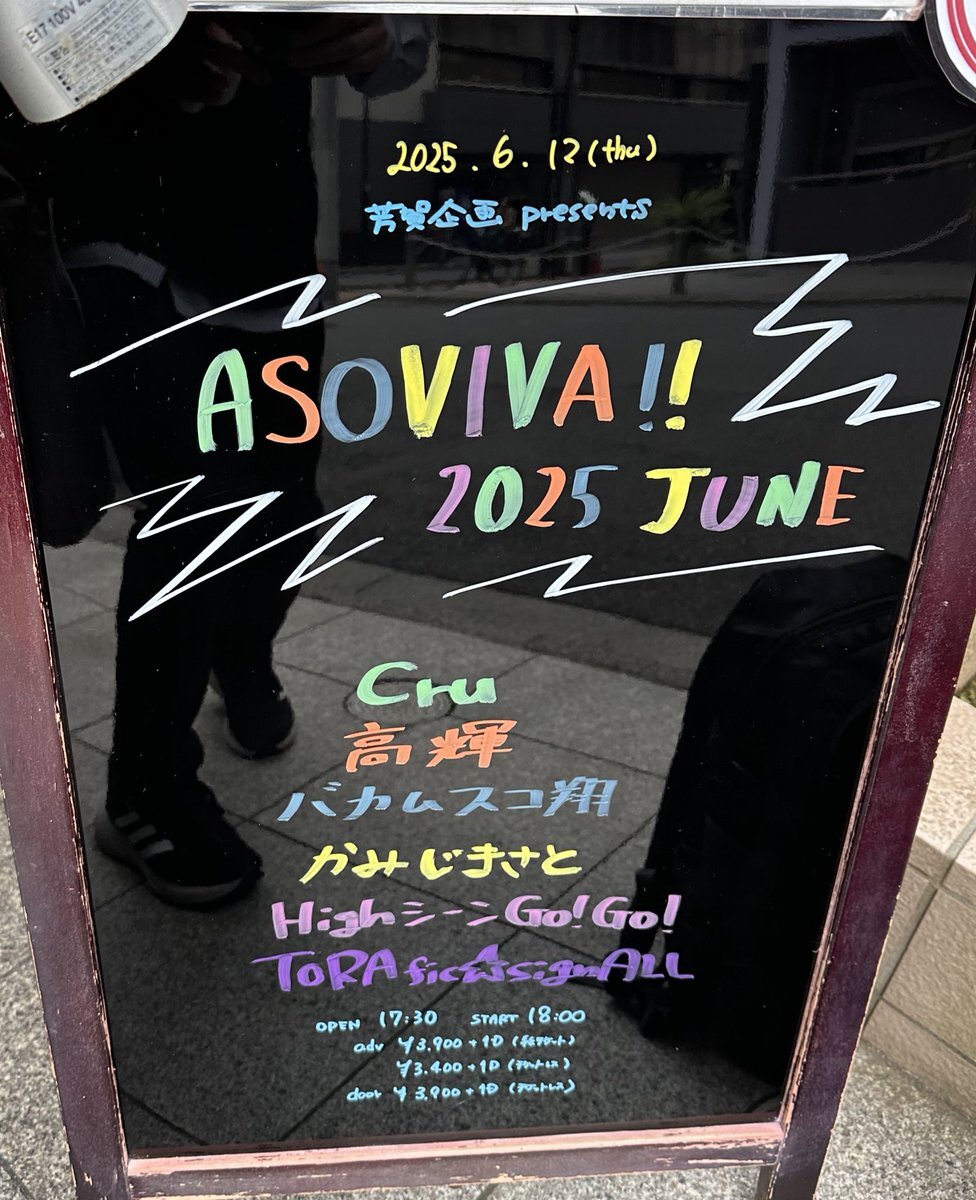 E17 100V 40
2025.6.12(thu)
芳賀企画 presents
ASOVIVA!!
2025 JUNE
Cru
高輝
バカムスコ翔
かみじまさと
HighシーンGo!Go!
ToRAfic☆signALL
OPEN 17:30 START 18:00
adv ¥3,900+1D
¥3,400+1D (チケットレス)
door ¥3,900+1D (チケットレス)